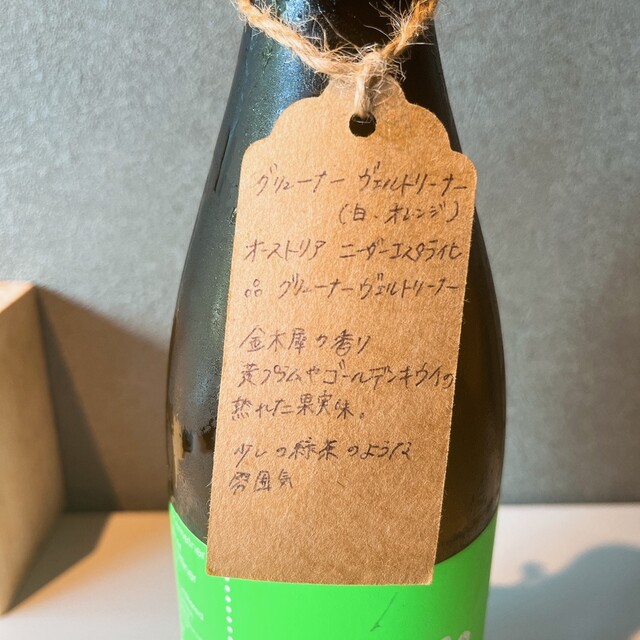 グリューナー ヴェルトリーナー
(白・オレンジ)
オーストリア ニーダーエスタライヒ
品 グリューナーヴェルトリーナー
金木犀の香り
黄プラムやゴールデンキウイの
熟れた果実味。
少しの緑茶のような
雰囲気